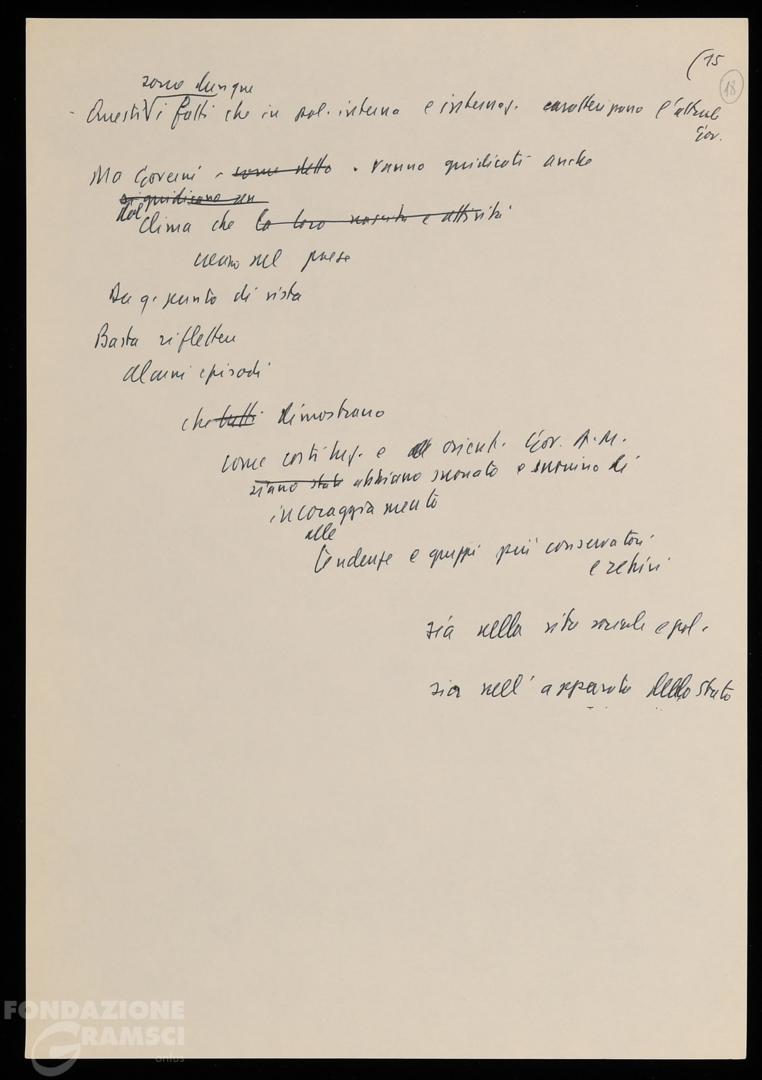 (15
18
sono dunque
- Questi i fatti che in pol. interna e internaz. caratterizzano l'attuale
Gov.
Ma Governi - come detto - vanno giudicati anche
si giudicano
dal
clima che la loro nascita e attività
creano nel paese
Da q. punto di vista
Basta riflettere
alcuni episodi
che tutti dimostrano
come costituz. e orient. Gov. A.M.
siano stati abbiano suonato e suonino di
incoraggiamento
alle
tendenze e gruppi più conservatori
e retrivi
sia nella vita sociale e pol.
sia nell'apparato dello Stato
FONDAZIONE
GRAMSCI
onlus